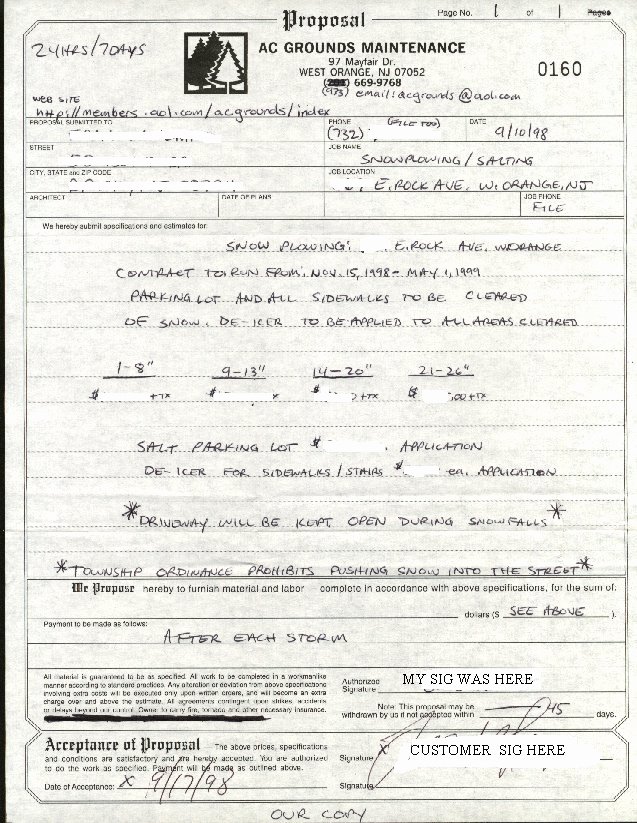 Proposal
Page No. 1 of 1 Pages
24HRS/7DAYS
AC GROUNDS MAINTENANCE
97 Mayfair Dr.
WEST ORANGE, NJ 07052
669-9768
0160
(973) email: acgrounds@aol.com
WEB SITE
http://members.aol.com/acgrounds/index
PROPOSAL SUBMITTED TO
PHONE (FILE TOO)
(732)
DATE
9/10/98
STREET
JOB NAME
SNOWPLOWING / SALTING
CITY, STATE and ZIP CODE
JOB LOCATION
E. ROCK AVE, W. ORANGE, NJ
ARCHITECT
DATE OF PLANS
JOB PHONE
FILE
We hereby submit specifications and estimates for:
SNOW PLOWING: E. ROCK AVE. W.ORANGE
CONTRACT TO RUN FROM: NOV. 15, 1998 - MAY 1, 1999
PARKING LOT AND ALL SIDEWALKS TO BE CLEARED
OF SNOW. DE-ICER TO BE APPLIED TO ALL AREAS CLEARED
1-8" 9-13" 14-20" 21-26"
$ +TX $ $ +TX $ .00+TX
SALT PARKING LOT $ . APPLICATION
DE-ICER FOR SIDEWALKS/STAIRS $ ea. APPLICATION
*DRIVEWAY WILL BE KEPT OPEN DURING SNOWFALLS*
*TOWNSHIP ORDINANCE PROHIBITS PUSHING SNOW INTO THE STREET*
We Propose hereby to furnish material and labor — complete in accordance with above specifications, for the sum of:
dollars ($ SEE ABOVE ).
Payment to be made as follows:
AFTER EACH STORM
All material is guaranteed to be as specified. All work to be completed in a workmanlike
manner according to standard practices. Any alteration or deviation from above specifications
involving extra costs will be executed only upon written orders, and will become an extra
charge over and above the estimate. All agreements contingent upon strikes, accidents
or delays beyond our control. Owner to carry fire, tornado and other necessary insurance.
Authorized
Signature MY SIG WAS HERE
Note: This proposal may be
withdrawn by us if not accepted within 45 days.
Acceptance of Proposal The above prices, specifications
and conditions are satisfactory and are hereby accepted. You are authorized
to do the work as specified. Payment will be made as outlined above.
Date of Acceptance: X 9/17/98
Signature X CUSTOMER SIG HERE
Signature
OUR COPY